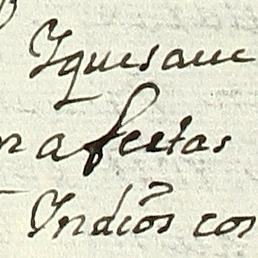 Iquesaue
n afectas
Indios cos